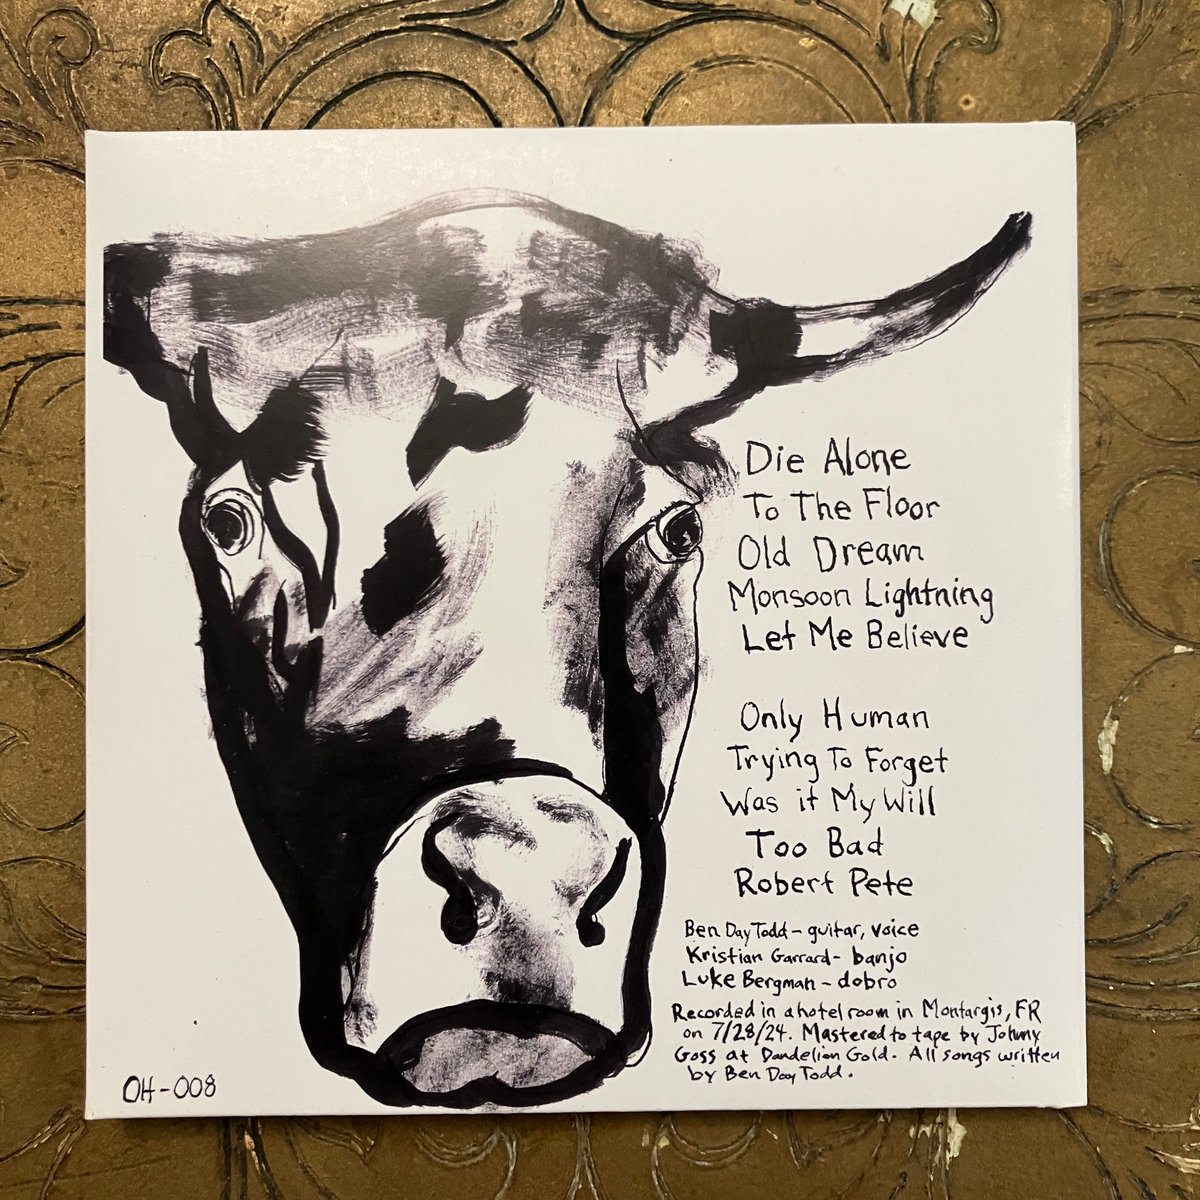 Die Alone
To The Floor
Old Dream
Monsoon Lightning
Let Me Believe
Only Human
Trying To Forget
Was it My Will
Too Bad
Robert Pete
Ben Day Todd - guitar, voice
Kristian Garrard - banjo
Luke Bergman - dobro
Recorded in a hotel room in Montargis, FR
on 7/28/24. Mastered to tape by Johnny
Goss at Dandelion Gold. All songs written
by Ben Day Todd.
OH-008